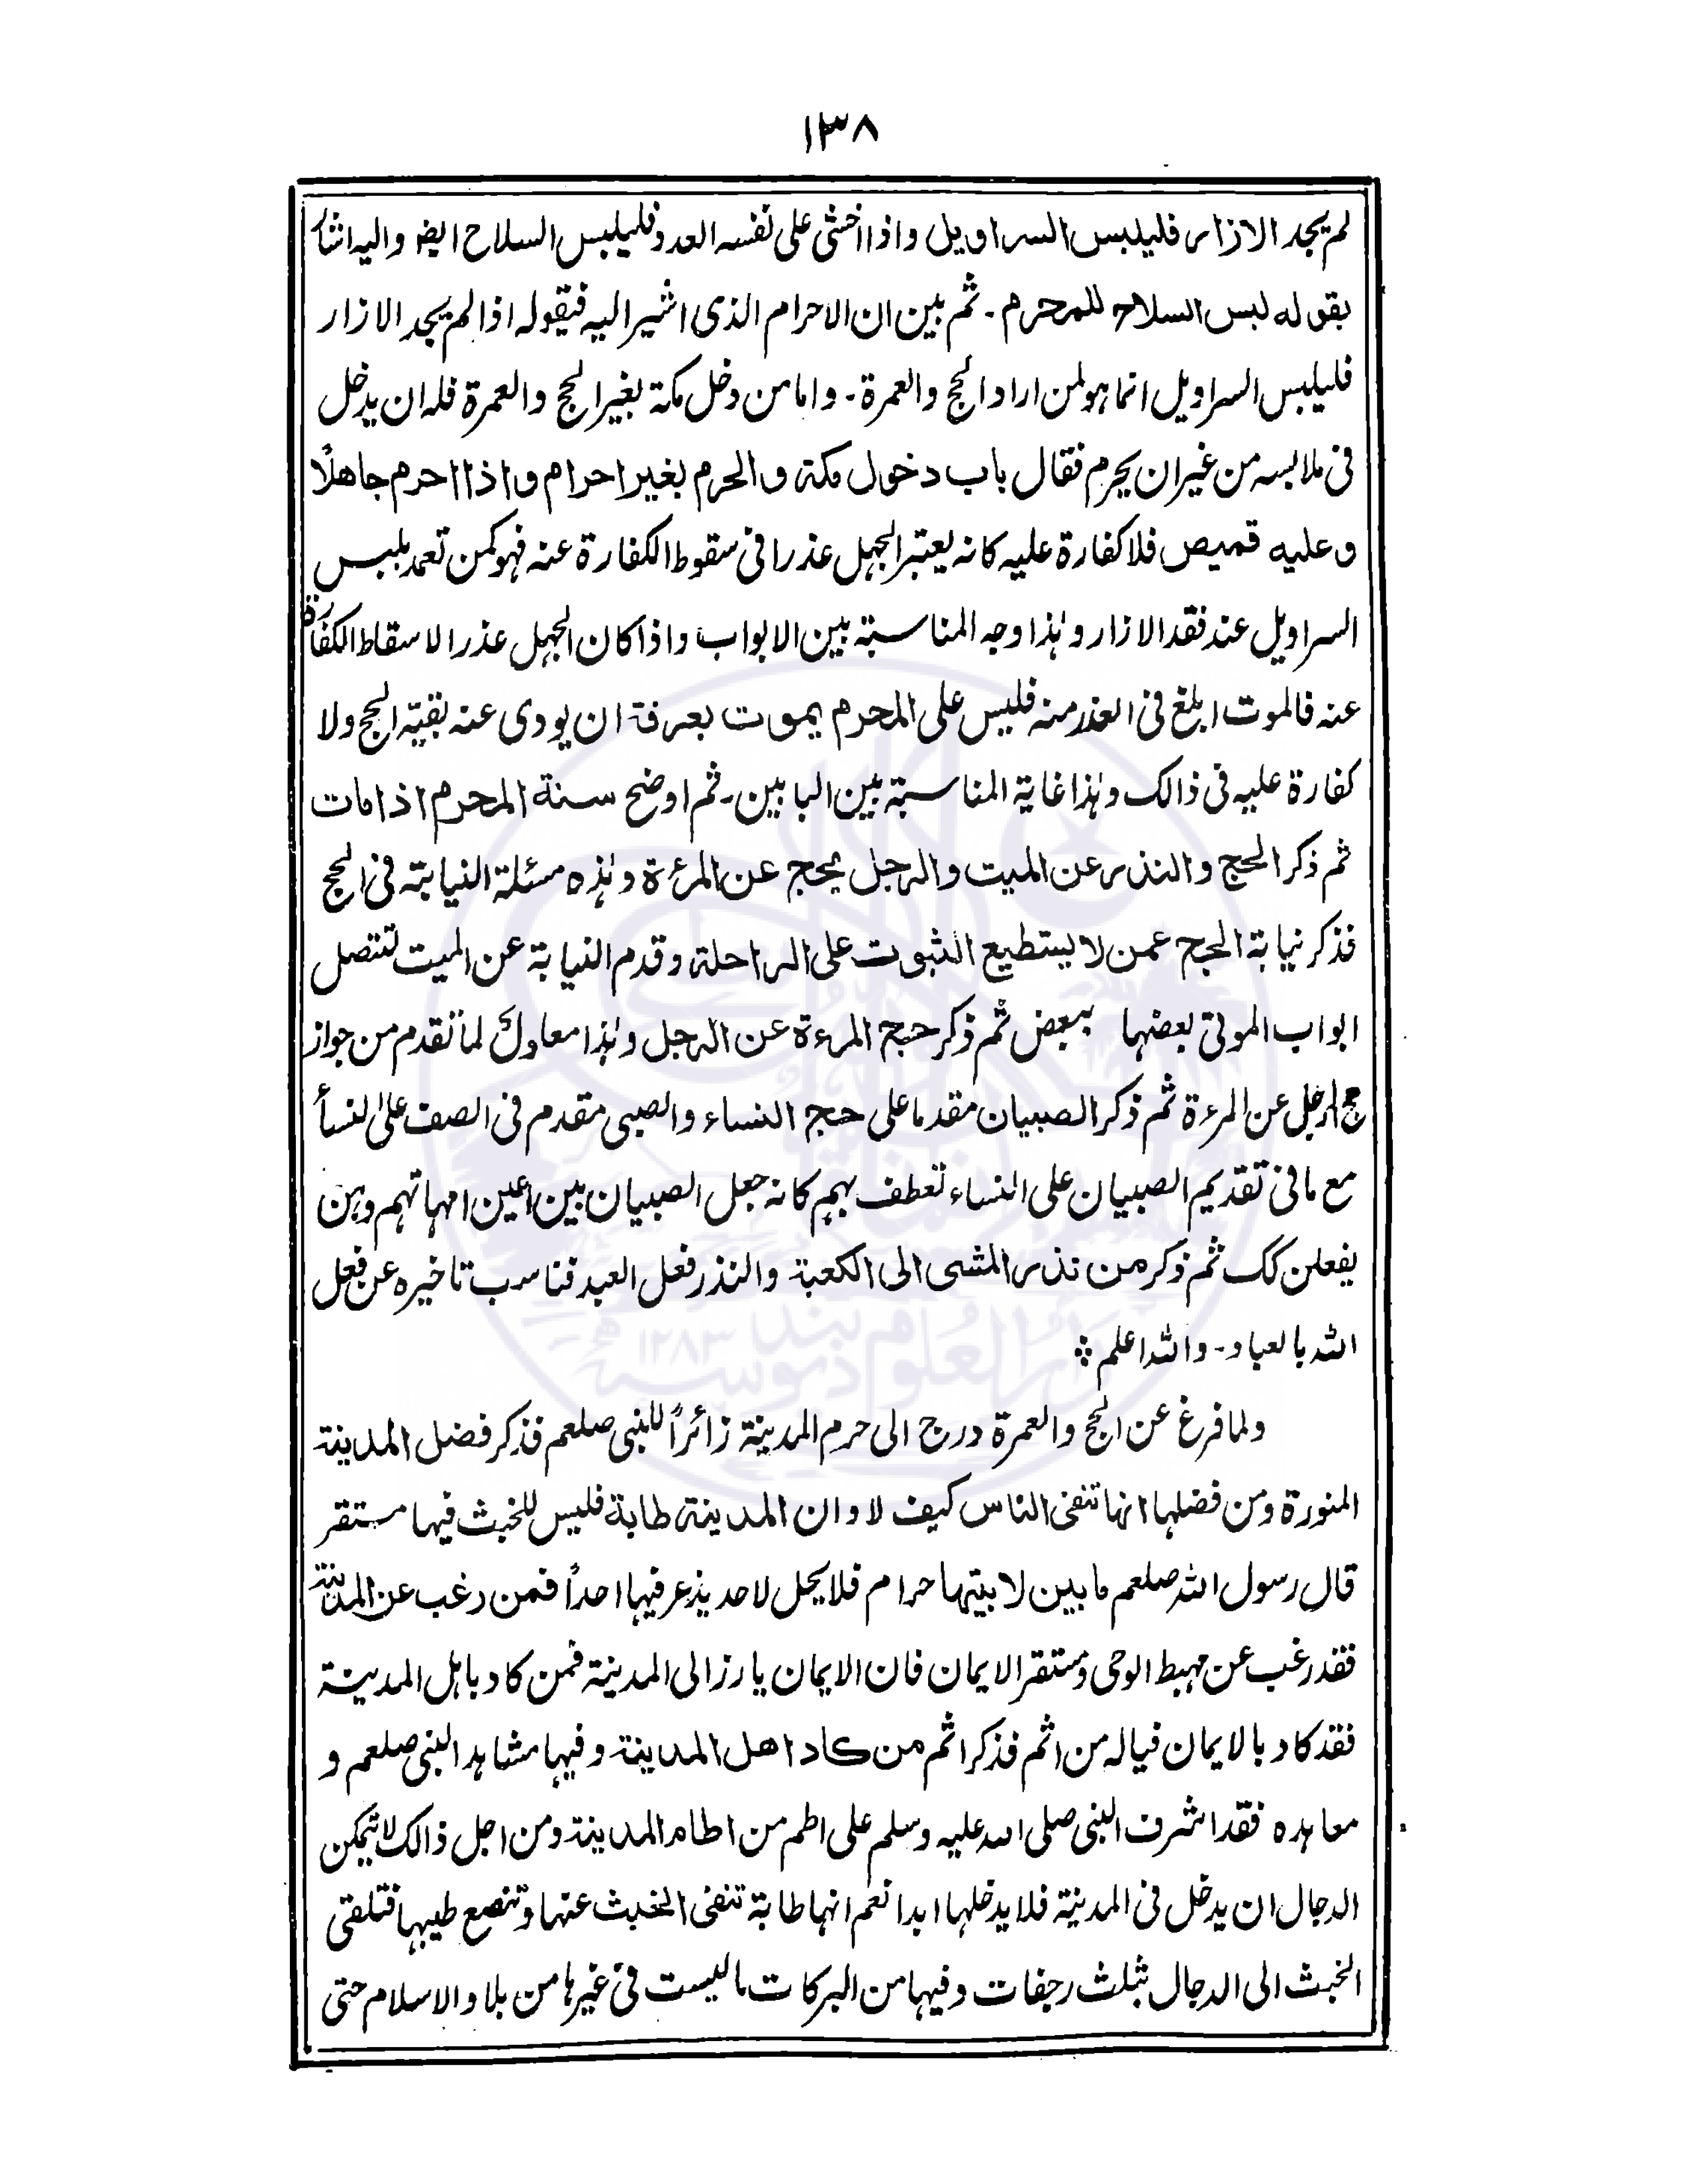 ١٣٨
لم يجد الازار فليلبس السراويل واذا اخشى على نفسه العدو فليلبس السلاح ايضا واليه اشار
بقوله لبس السلاح للمحرم - ثم بين ان الاحرام الذى اشير اليه فيقوله اذا لم يجد الازار
فليلبس السراويل انما هو لمن اراد الحج والعمرة - واما من دخل مكة بغير الحج والعمرة فله ان يدخل
فى ملابسه من غير ان يحرم فقال باب دخول مكة والحرم بغير احرام واذا احرم جاهلًا
وعليه قميص فلا كفارة عليه كانه يعتبر الجهل عذرا فى سقوط الكفارة عنه فهو كمن تعمد بلبس
السراويل عند فقد الازار وهذا وجه المناسبة بين الابواب واذا كان الجهل عذرا لاسقاط الكفارة
عنه فالموت ابلغ فى العذر منه فليس على المحرم يموت بعرفة ان يودى عنه بقية الحج ولا
كفارة عليه فى ذالك وهذا غاية المناسبة بين البابين - ثم اوضح سنة المحرم اذا مات
ثم ذكر الحج والنذر عن الميت والرجل يحج عن المرءة وهذه مسئلة النيابة فى الحج
فذكر نيابة الحج عمن لا يستطيع الثبوت على الراحلة وقدم النيابة عن الميت لتتصل
ابواب الموتى بعضها ببعض ثم ذكر حج المرءة عن الرجل وهذا معاول لما تقدم من جواز
حج الرجل عن المرءة ثم ذكر الصبيان مقدما على حج النساء والصبى مقدم فى الصف على النساء
مع ما فى تقديم الصبيان على النساء تعطف بهم كانه جعل الصبيان بين اعين امهاتهم وهن
يفعلن كك ثم ذكر من نذر المشى الى الكعبة والنذر فعل العبد فناسب تاخيره عن فعل
الله بالعباد - والله اعلم ؞
ولما فرغ عن الحج والعمرة درج الى حرم المدينة زائراً للنبى صلعم فذكر فضل المدينة
المنورة ومن فضلها انها تنفى الناس كيف لا وان المدينة طابة فليس للخبث فيها مستقر
قال رسول الله صلعم ما بين لابيتها حرام فلا يحل لاحد يذعر فيها احداً فمن رغب عن المدينة
فقد رغب عن مهبط الوحى ومستقر الايمان فان الايمان يارز الى المدينة فمن كاد باهل المدينة
فقد كاد بالايمان فياله من اثم فذكر اثم من كاد اهل المدينة وفيها مشاهد النبى صلعم و
معاهده فقد اشرف النبى صلى الله عليه وسلم على اطم من اطام المدينة ومن اجل ذالك لا يتمكن
الدجال ان يدخل فى المدينة فلا يدخلها ابدا نعم انها طابة تنفى الخبث عنها وتنصع طيبها فتلقى
الخبث الى الدجال بثلث رجفات وفيها من البركات ما ليست فى غيرها من بلاد الاسلام حتى